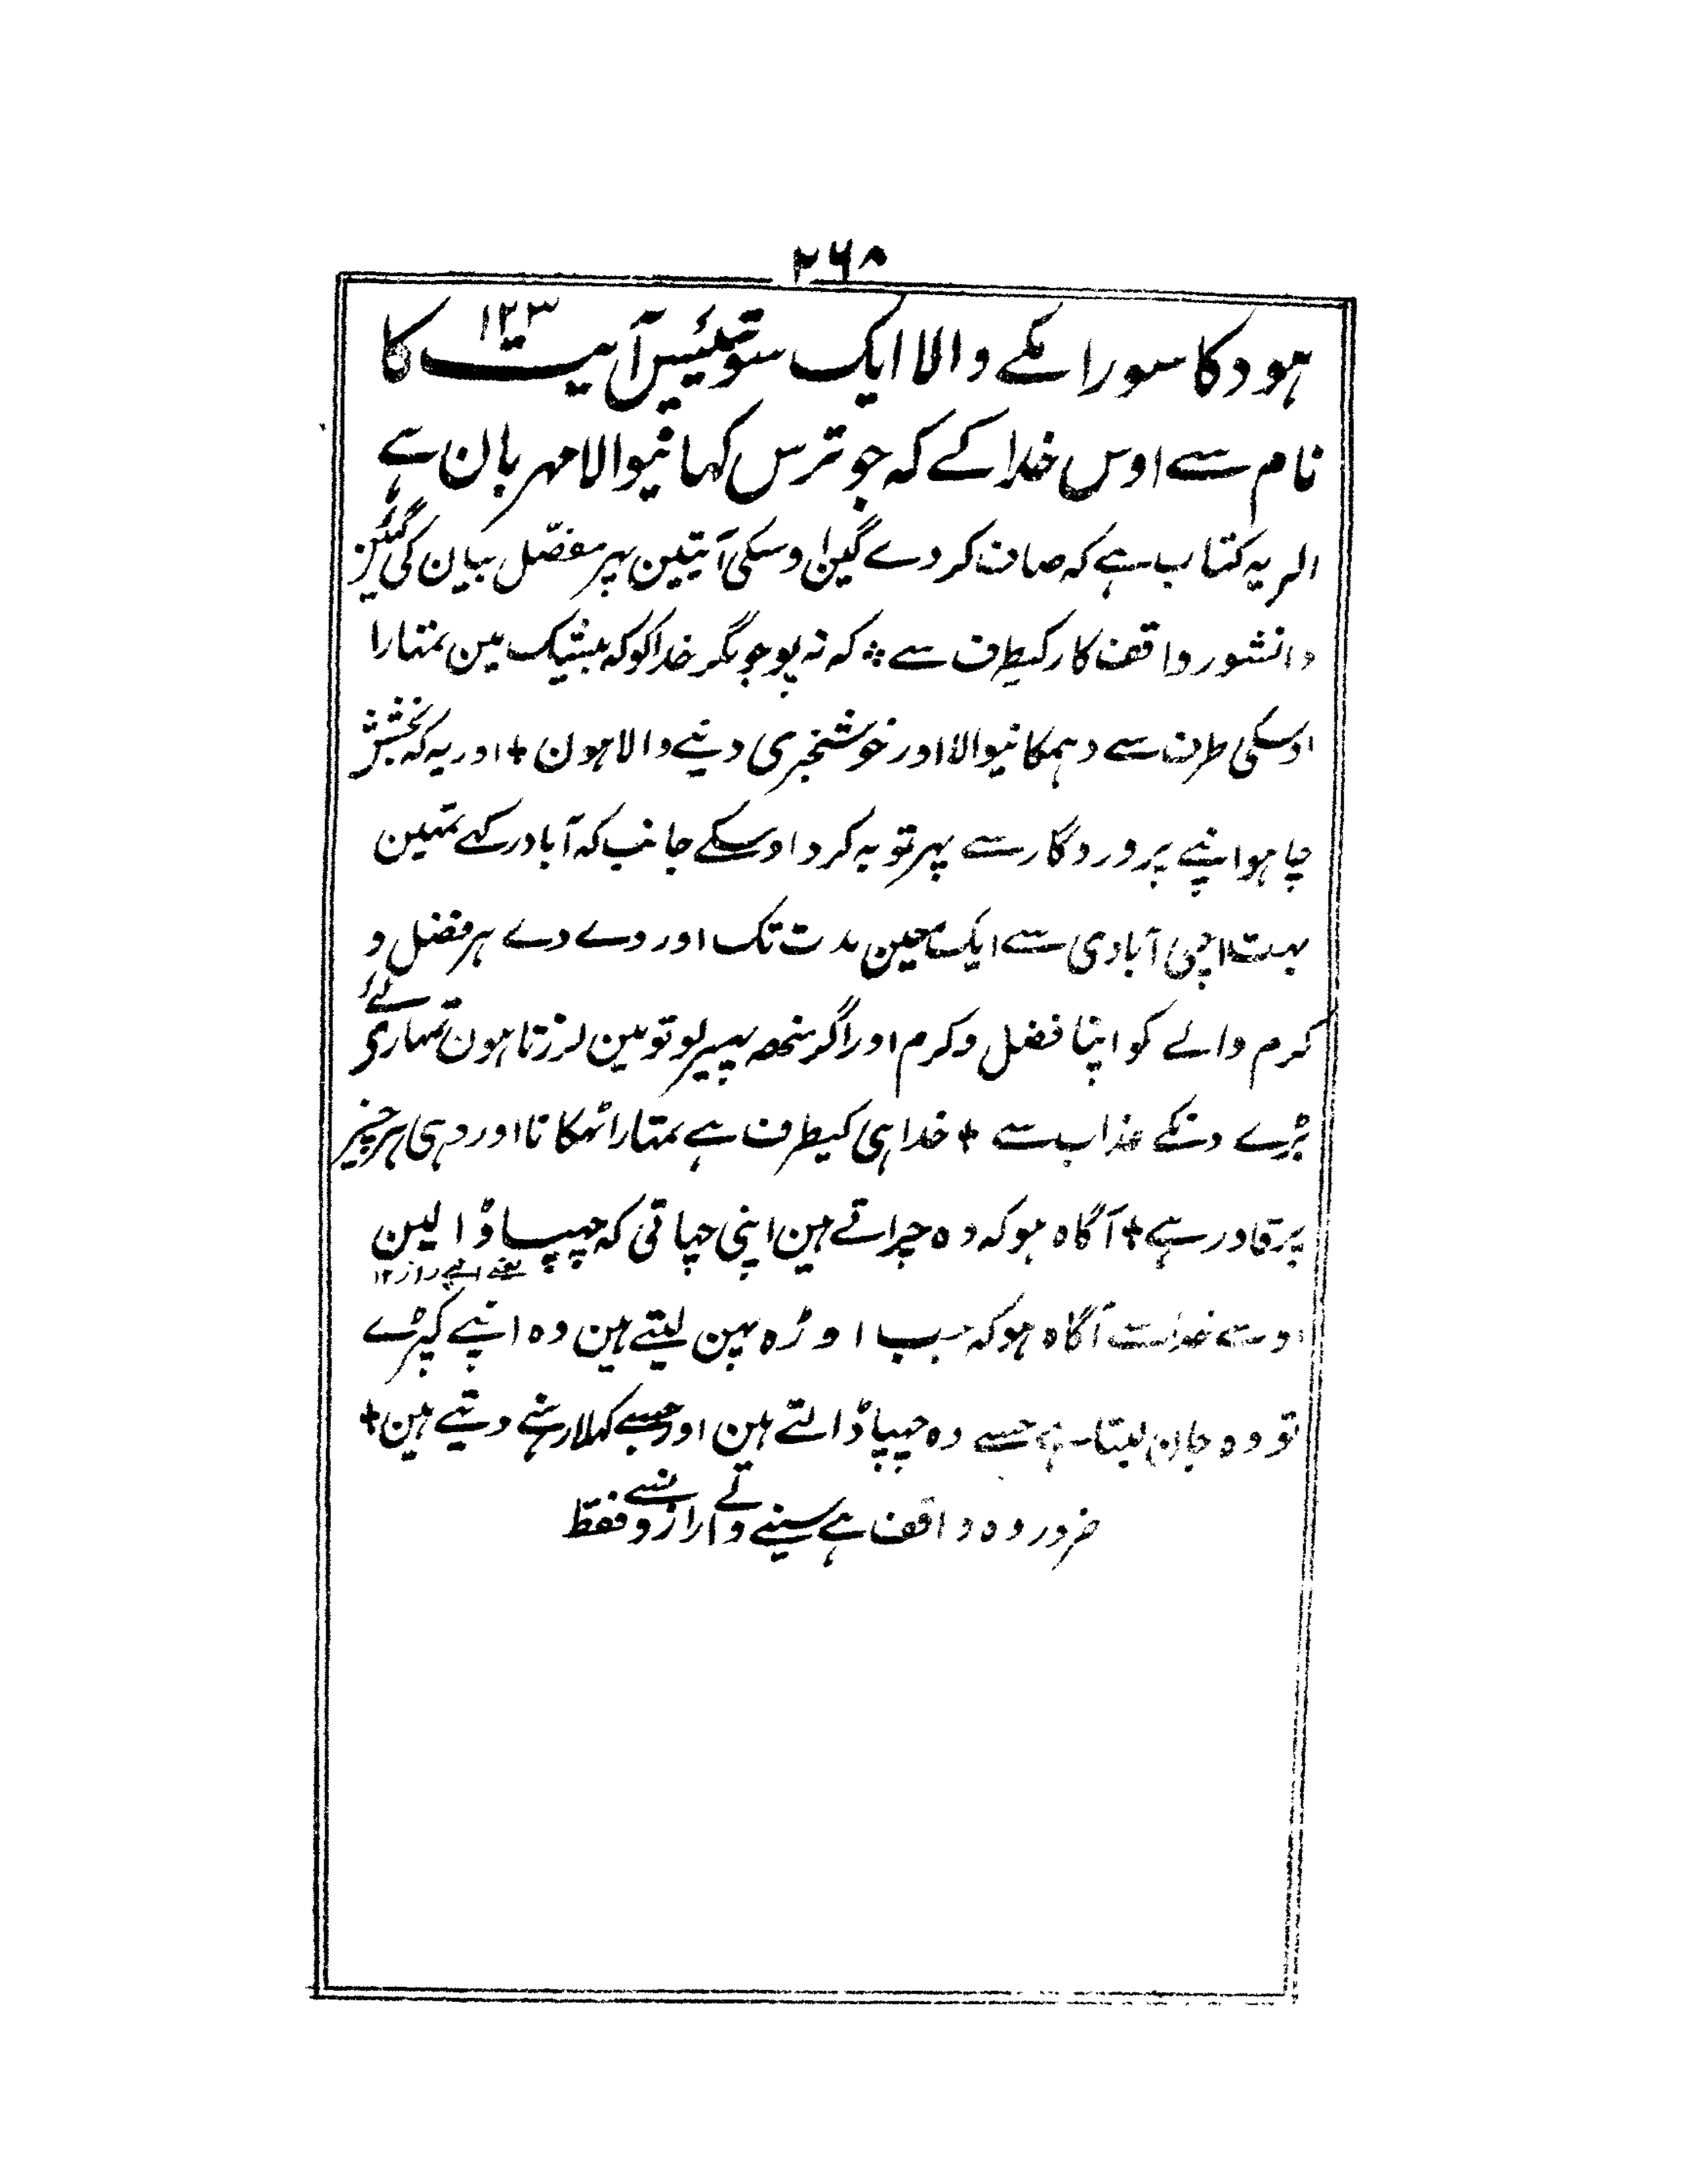 ۲۶۸
ہود کا سورا مکے والا ایک سو تیئیس آیت ۱۲۳ کا
نام سے اوس خدا کے کہ جو ترس کہانیوالا مہربان ہے
الر یہ کتاب ہے کہ صاف کر دے گین اوسکی آیتین پہر مفصّل بیان کی گئین
دانشور واقف کار کیطرف سے ❖ کہ نہ پوجو مگر خدا کو کہ بیشک مین تمہارا
اوسکی طرف سے دہمکانیوالا اور خوشخبری دینے والا ہون + اور یہ کہ بخشش
چاہو اپنے پروردگار سے پہر توبہ کرو اوسکے جانب کہ آباد رکہے تمہین
بہت اچہی آبادی سے ایک معین مدت تک اور دے دے ہر فضل و
کرم والے کو اپنا فضل و کرم اور اگر منھ پہیر لو تو مین لرزتا ہون تمہاری لئے
بڑے دنکے عذاب سے + خدا ہی کیطرف ہے تمہارا ٹہکانا اور وہی ہر چیز
پر قادر ہے + آگاہ ہو کہ وہ چراتے ہین اپنی چہاتی کہ چہپا ڈالین
یعنے اپنے راز ۱۲
اوسے خدا سے آگاہ ہو کہ جب اوڑہ پہن لیتے ہین وہ اپنے کپڑے
تو وہ جان لیتا ہے جسے وہ چہپا ڈالتے ہین اور جسے کہلا رہنے دیتے ہین +
ضرور وہ واقف ہے سینے والے رازونسے فقط